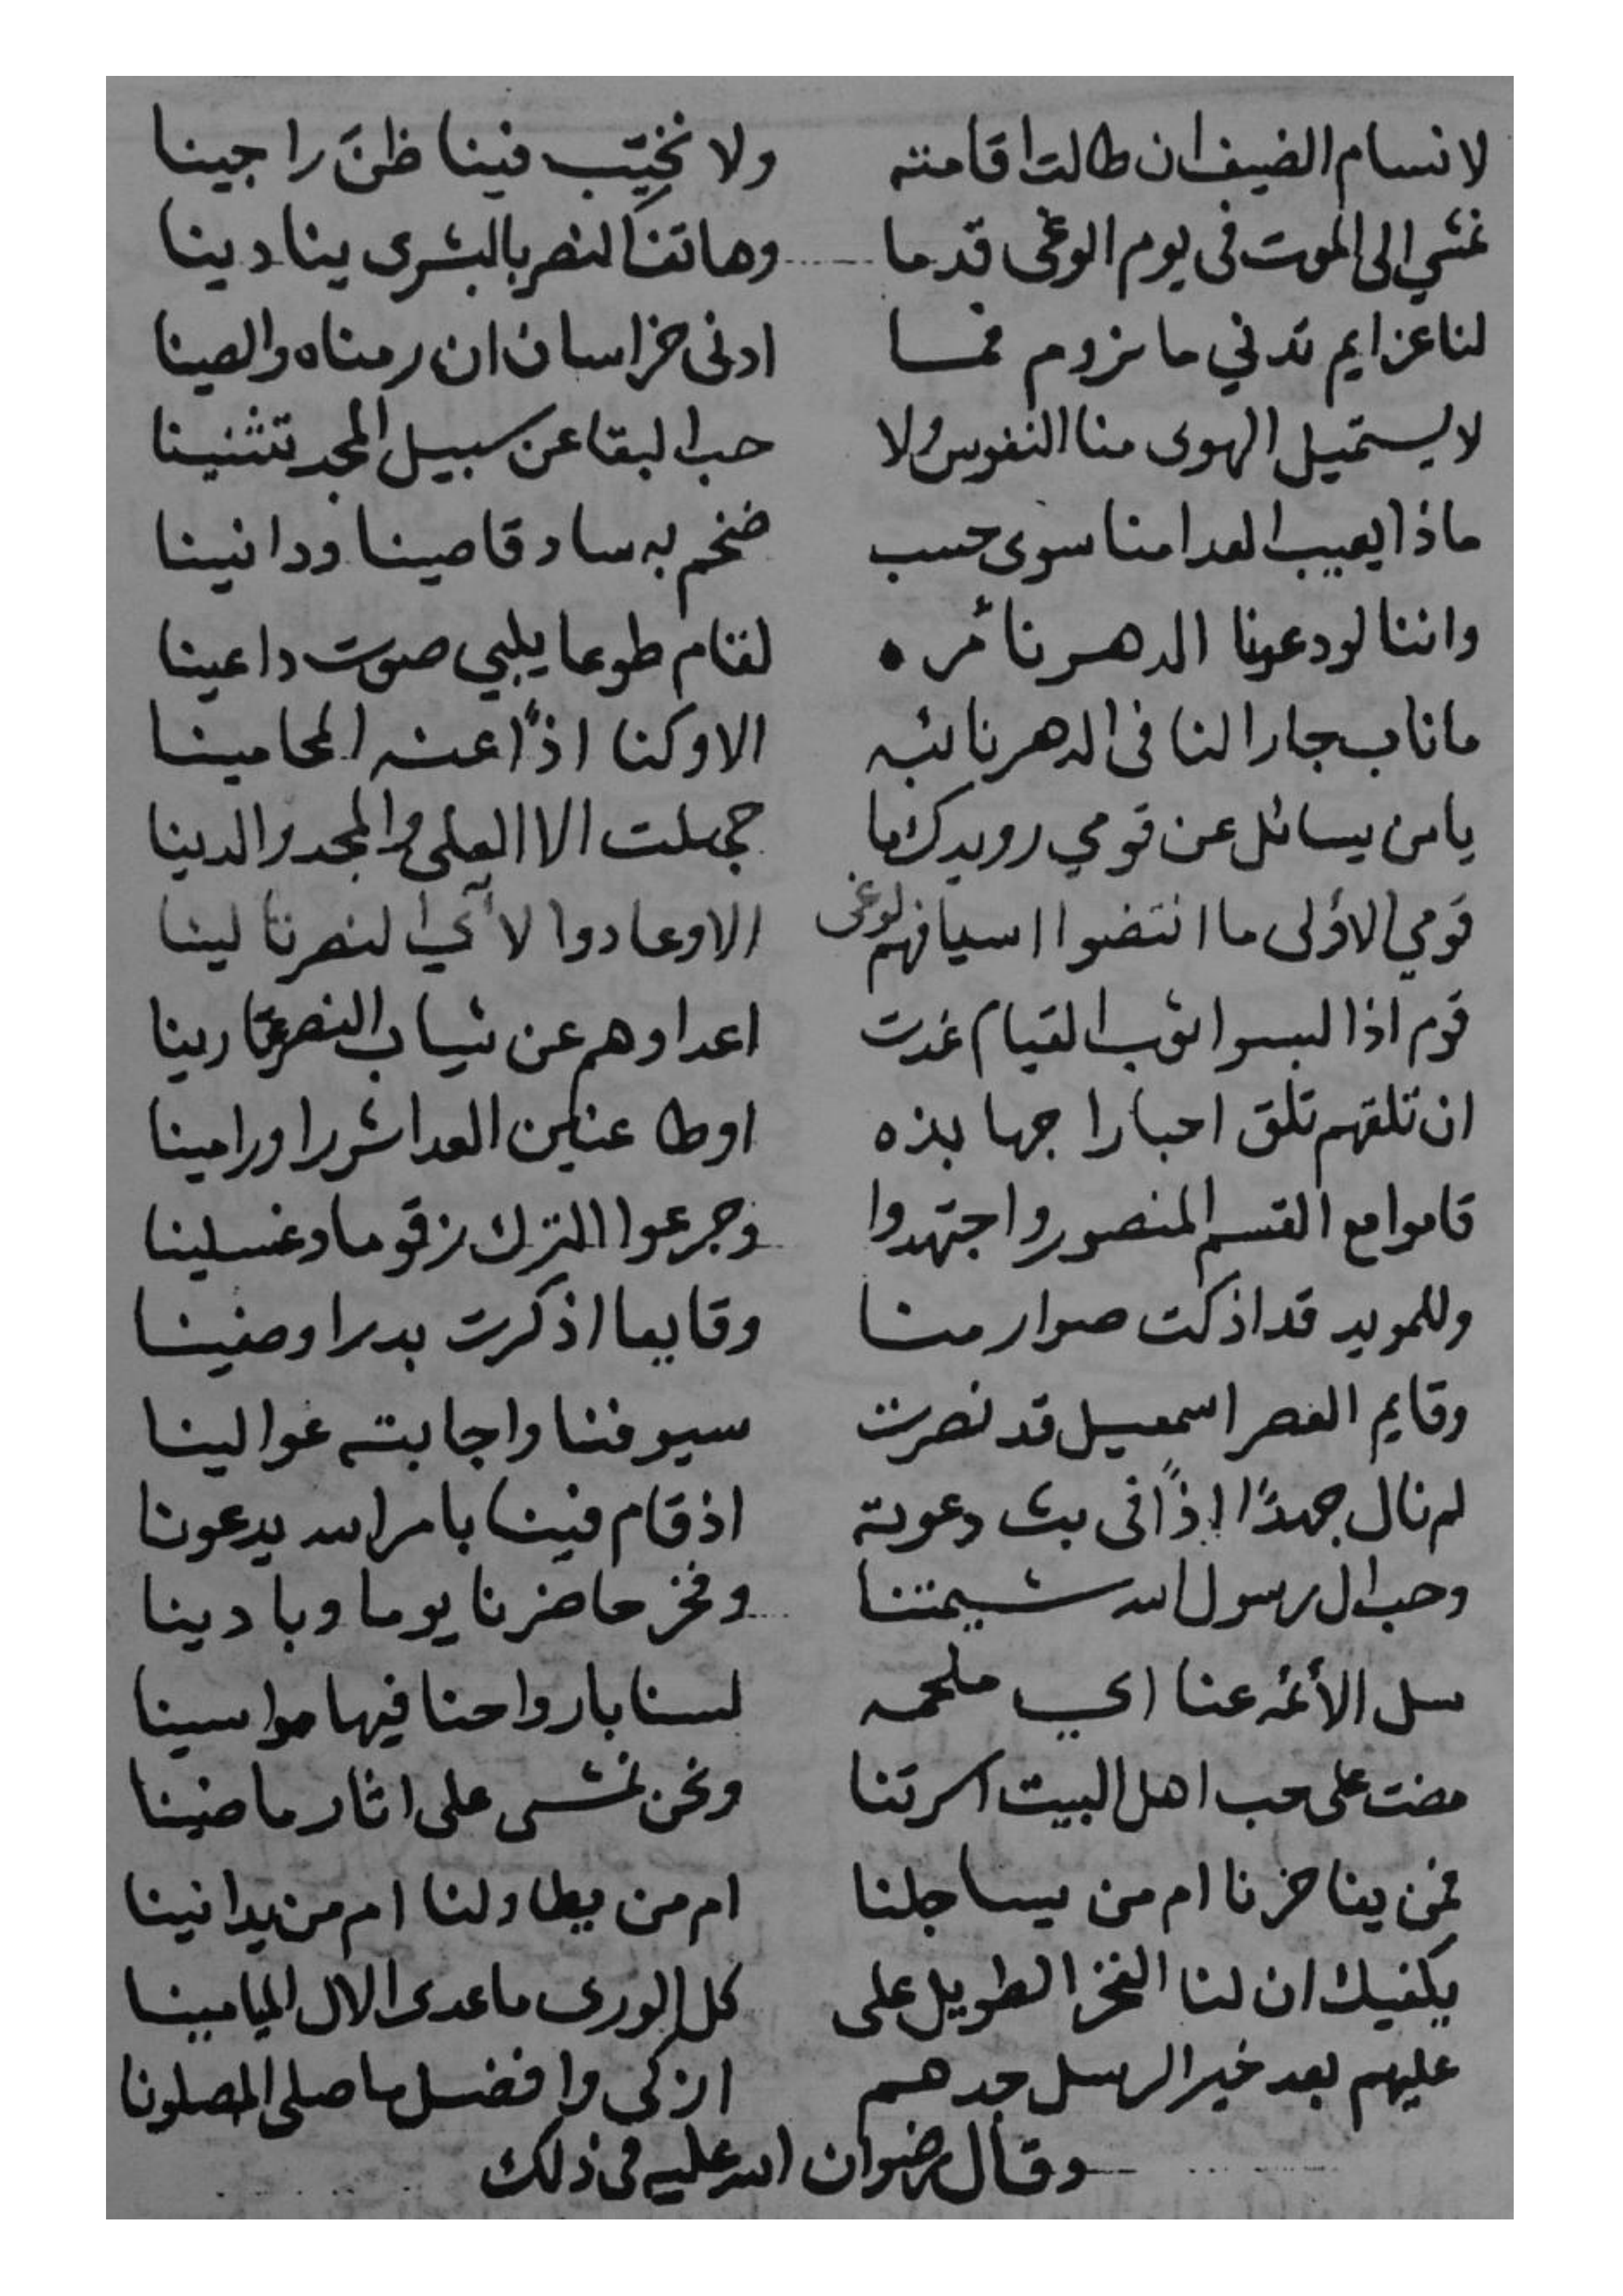 لا نسام الضيف ان طالت اقامته ولا نخيّب فينا ظنَّ راجينا
نمشي الى الموت فى يوم الوغى قدما وهاتف النصر بالبشرى ينادينا
لنا عزايم تدني ما نروم فما ادنى خراسان ان رمناه والصينا
لا يستميل الهوى منا النفوس ولا حب البقا عن سبيل المجد تثنينا
ماذا يعيب العدا منا سوى حسب ضخم به ساد قاصينا ودانينا
واننا لو دعونا الدهر نأمره لقام طوعا يلبي صوت داعينا
ما ناب جارا لنا فى الدهر نائبه الا وكنا اذاً عنه المحامينا
يا من يسائل عن قومي رويدك ما جهلت الا العلى والمجد والدينا
قومي الاولى ما انتضوا اسيافهم لوغى الا وعادوا لآي النصر تالينا
قوم اذا لبسوا ثوب القيام غدت اعداوهم عن ثياب النصر عارينا
ان تلقهم تلق احبارا جهابذه اوطاعنين العدا شررا ورامينا
قاموا مع القسم المنصور واجتهدوا وجرعوا الترك زقوما وغسلينا
وللمويد قد اذكت صوارمنا وقايعا اذكرت بدرا وصفينا
وقايم العصر اسمعيل قد نصرت سيوفنا واجابته عوالينا
لم نال جهدًا اذاً فى بث دعوته اذ قام فينا بامر الله يدعونا
وحب ال رسول الله شيمتنا وفخر حاضرنا يوما وبادينا
سل الأئمه عنا اي ملحمه لسنا بارواحنا فيها مواسينا
مضت على حب اهل البيت اسرتنا ونحن نمشى على اثار ماضينا
فمن يفاخرنا ام من يساجلنا ام من يطاولنا ام من يدانينا
يكفيك ان لنا الفخر الطويل على كل الورى ما عدى الال الميامينا
عليهم بعد خير الرسل جدهم ازكى وافضل ما صلى المصلونا
وقال رضوان الله عليه فى ذلك